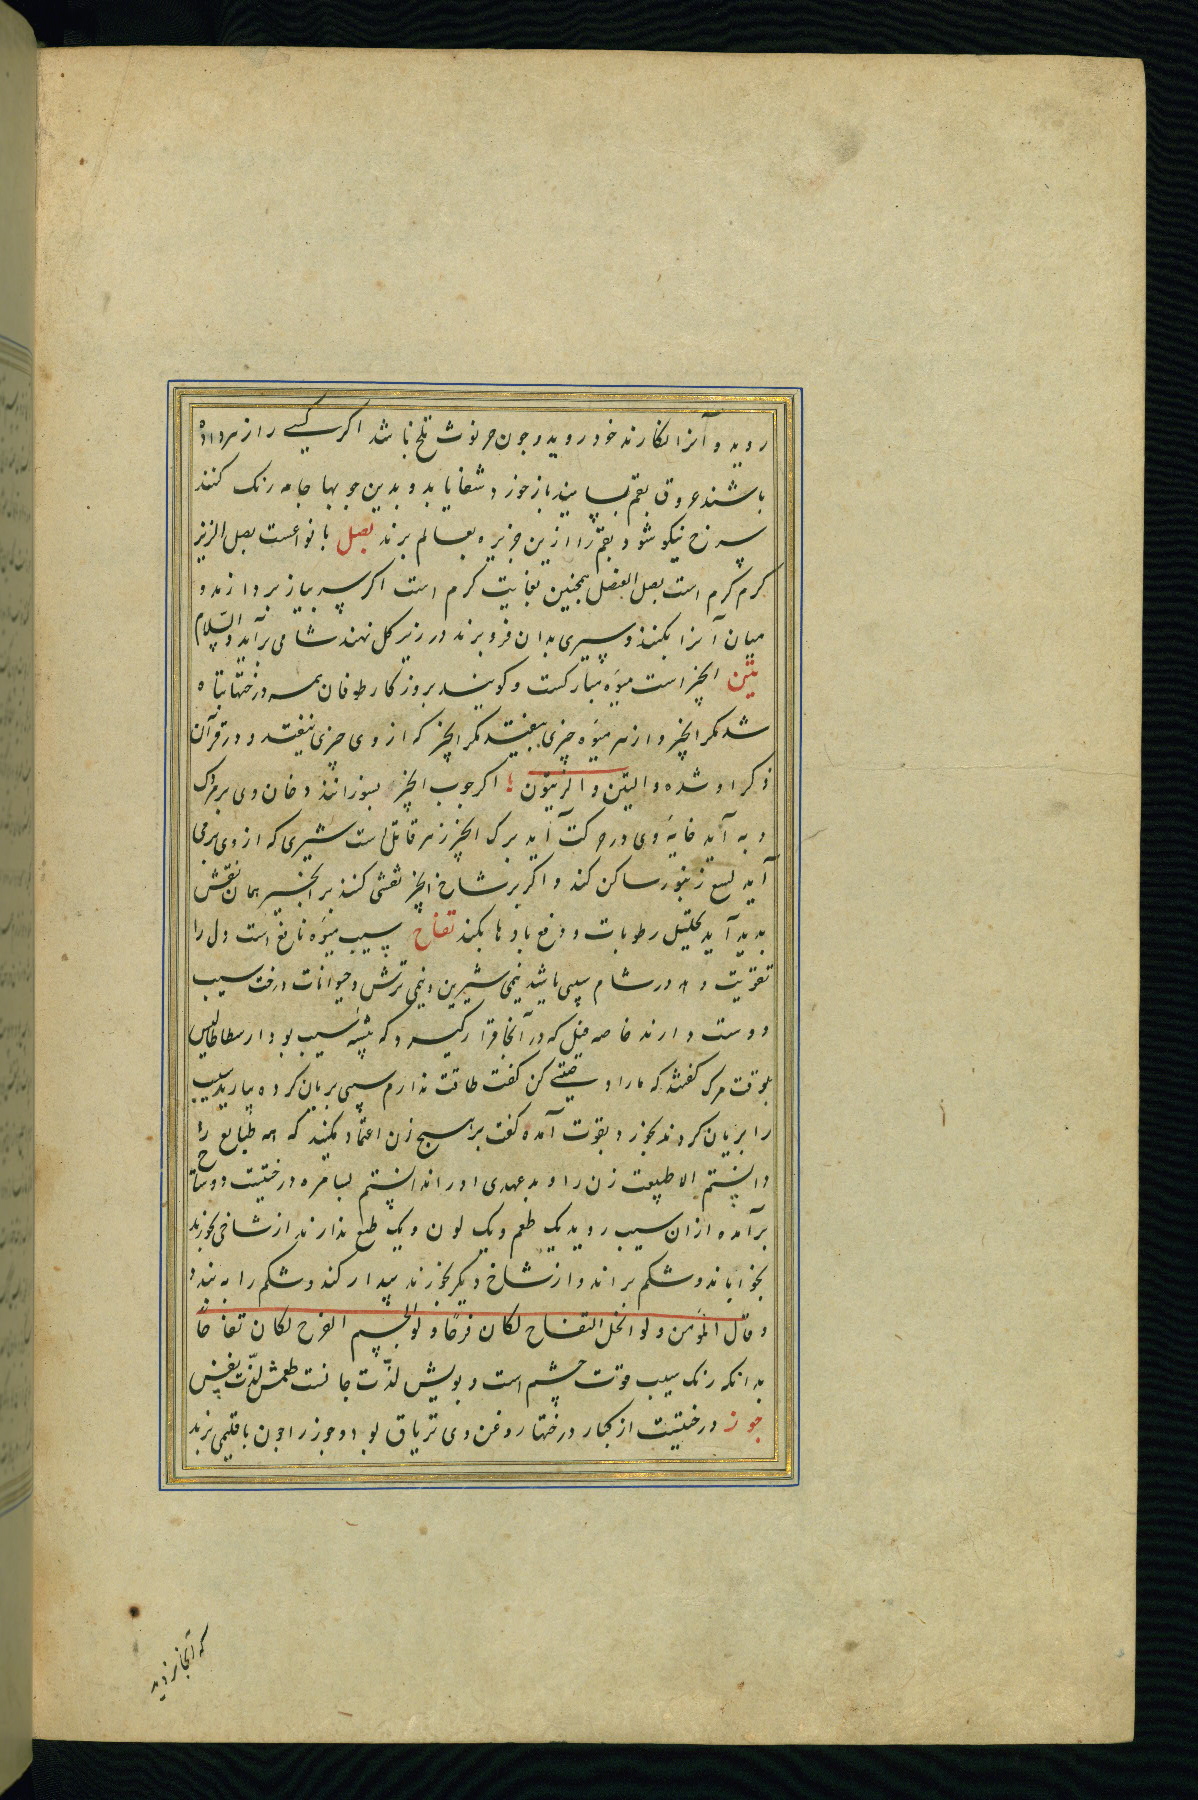 روید و آنرا نکارند خود روید و چون خرنوش تلخ باشد اکر کسی را زهر داده
باشند عروق بقم بسایند باز خورد شفا یابد و بدین چوبها جامه رنک کنند
سرخ نیکو شود و بقم را ازین جزیره بعالم برند بصل بانواعست بصل الزیز
کرم کرم است بصل العنصل همچنین بغایت کرم است اکر سر پیاز بردارند و
میان آنرا بکنند و سیری بدان فرو برند در زیر کل نهند شامی برآید والسّلام
تین انجیر است میوه مبارکست و کویند بروزکار طوفان همه درختها تباه
شد مکر انجیر و از هر میوه چیزی بیفتد مکر انجیر که از وی چیزی نیفتد و در قرآن
ذکر او شده والتین والزیتون اکر چوب انجیر بسوزانند دخان وی بر
و به آید خایهٔ وی در حرکت آید برک انجیر زهر قاتل است شیری که از وی بر می
آید لسع زنبور ساکن کند و اکر بر شاخ انجیر نقشی کنند بر انجیر همان نقش
بدید آید تحلیل رطوبات و دفع بادها بکند تفاح سیب میوه نافع است دل را
تقویت دهد در شام سیبی باشد نیمی شیرین و نیمی ترش و حیوانات درخت سیب
دوست دارند خاصه فیل که در آنجا قرار کیرد که بیشه سیب بود ارسطاطالیس
بوقت مرک کفتند که ما را وصیتی کن کفت طاقت ندارم سیبی بریان کرده بیارید سیب
را بریان کردند بخورد بقوت آمده کفت بر هیچ زن اعتماد مکنید که همه طبایع را
دانستم الا طبیعت زن را و بد عهدی او را ندانستم بسامره درختیست دو شاخ
برآمده ازان سیب روید یک طعم و یک لون و یک طبع ندارند از شاخی بخورند
بخواباند و شکم براند و از شاخ دیکر بخورند بیدار کند و شکم را به بندد
و قال المؤمن و لو انحل التفاح لکان فرحا و لو تجسم الفرح لکان تفاحا
بدانکه رنک سیب قوت چشم است و بویش لذّت جانست طعمش لذّت نفس
جوز درختیست از کبار درختها روغن وی تریاق بود و جوز را چون باقلیمی برند
که آنجا نروید